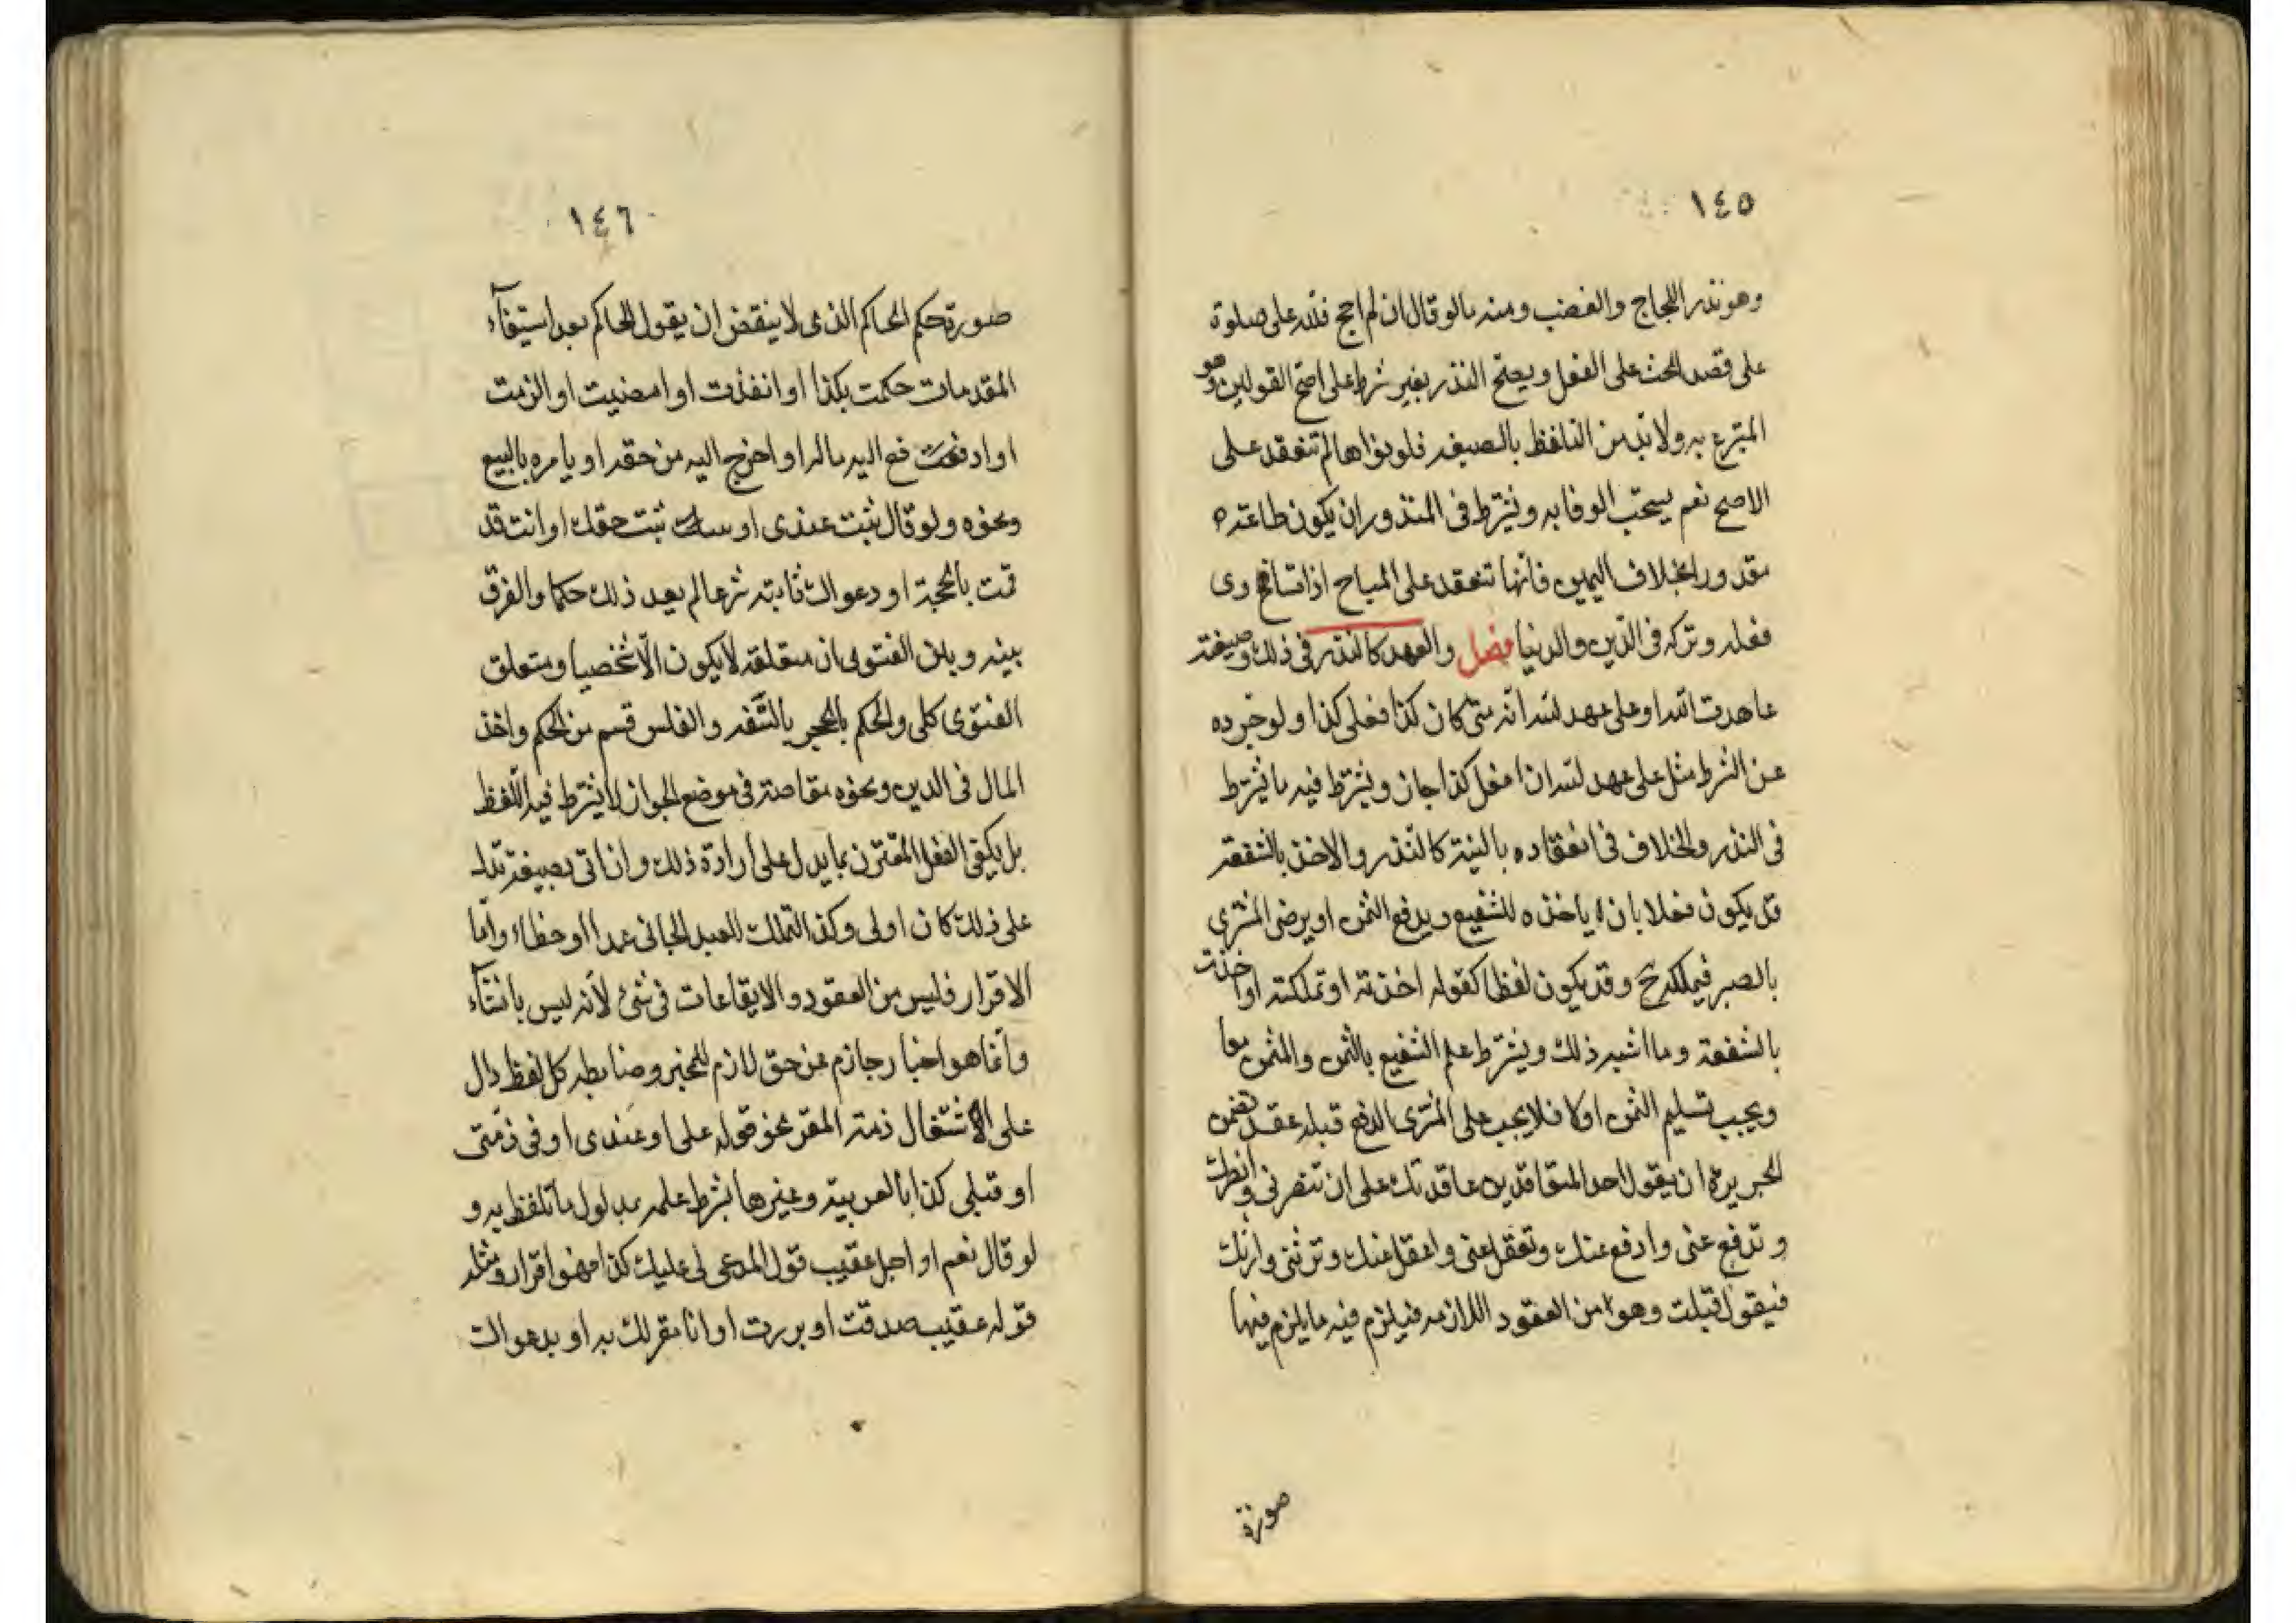 ١٤٥
وهو نذر اللجاج والغضب ومنه ما لو قال ان لم احج فلله على صلوة
على قصد الحث على الفعل ويصح النذر بغير شرط على اصح القولين وهو
المتبرع به ولا بد من التلفظ بالصيغه فلو نواها لم تنعقد على
الاصح نعم يستحب الوفا به ويشترط فى المنذور ان يكون طاعته
مقدورا بخلاف اليمين فانها تنعقد على المباح اذا تساوى
فعله وتركه فى الدّين والدنيا فصل والعهد كالنذر فى ذلك وصيغته
عاهدت الله او على عهد لله انه متى كان كذا فعلى كذا ولو جرده
عن الشرط مثل على عهد لله ان افعل كذا جاز ويشترط فيه ما يشترط
فى النذر والخلاف فى انعقاده بالنية كالنّذر والاخذ بالشفعة
قد يكون فعلا بان ياخذه الشفيع ويدفع الثمن او يرضى المشترى
بالصبر فيملكه ح وقد يكون لفظا كقوله اخذته او تملكته او اخذت
بالشفعة وما اشبه ذلك ويشترط علم الشفيع بالثمن والمثمن معا
ويجب تسليم الثمن اولا فلا يجب على المشترى الدفع قبله عقد تضمن
الجريرة ان يقول احد المتعاقدين عاقدتك على ان تنصرنى وانصرك
و تدفع عنى وادفع عنك وتعقل عنى واعقل عنك وترثنى وارثك
فيقول قبلت وهو من العقود اللازمه فيلزم فيه ما يلزم فيها
صورة
١٤٦
صورة حكم الحاكم الذى لا ينقض ان يقول الحاكم بعد استيفآء
المقدمات حكمت بكذا او انفذت او امضيت او الزمت
او ادفع اليه ماله او اخرج اليه من حقه او يامره بالبيع
ونحوه ولو قال ثبت عندى او ثبت حقك او انت قد
قمت بالحجة او دعواك ثابته شرعا لم يعد ذلك حكما والفرق
بينه وبين الفتوى ان متعلقه لا يكون الّا شخصيا ومتعلق
الفتوى كلى والحكم بالحجر بالسّفه والفلس قسم من الحكم واخذ
المال فى الدين ونحوه مقاصة فى موضع الجواز لا يشترط فيه اللّفظ
بل يكفى الفعل المقترن بما يدل على ارادة ذلك وان اتى بصيغة تدل
على ذلك كان اولى وكذا التملك للعبد الجانى عمدا او خطاء وامّا
الاقرار فليس من العقود والايقاعات فى شئ لأنه ليس بانشآء
وانّما هو اخبار جازم عن حق لازم للمخبر وضابطه كل لفظ دال
على اشتغال ذمة المقر نحو قوله على او عندى او فى ذمّتى
او قبلى كذا بالعربية وغيرها بشرط علمه بمدلول ما تلفظ به و
لو قال نعم او اجل عقيب قول المدعى لى عليك كذا فهو اقرار ومثله
قوله عقيبه صدقت او بررت او انا مقر لك به او بدعواك